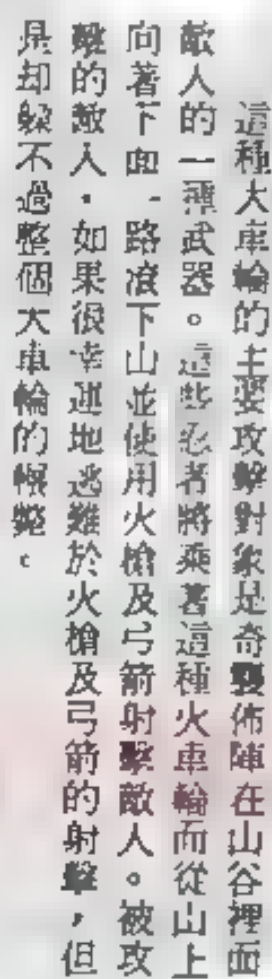 這種大車輪的主要攻擊對象是奇襲佈陣在山谷裡面
敵人的一種武器。這些忍者將乘著這種火車輪而從山上
向著下面一路滾下山並使用火槍及弓箭射擊敵人。被攻
擊的敵人,如果很幸運地逃難於火槍及弓箭的射擊,但
是卻躲不過整個大車輪的輾斃。